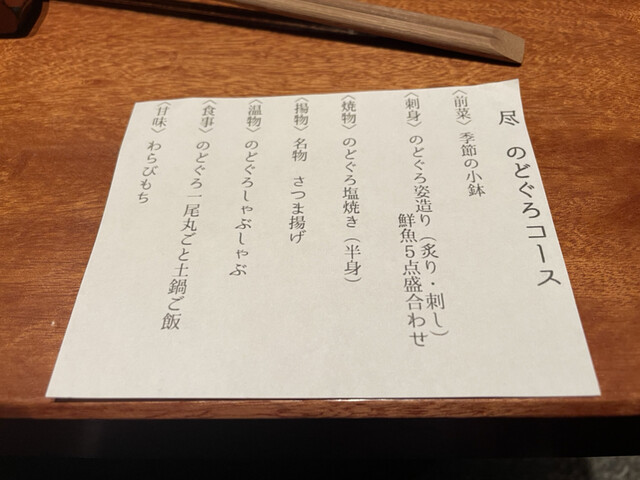 尽 のどぐろコース
〈前菜〉季節の小鉢
〈刺身〉のどぐろ姿造り（炙り・刺し）
鮮魚５点盛合わせ
〈焼物〉のどぐろ塩焼き（半身）
〈揚物〉名物 さつま揚げ
〈温物〉のどぐろしゃぶしゃぶ
〈食事〉のどぐろ一尾丸ごと土鍋ご飯
〈甘味〉わらびもち